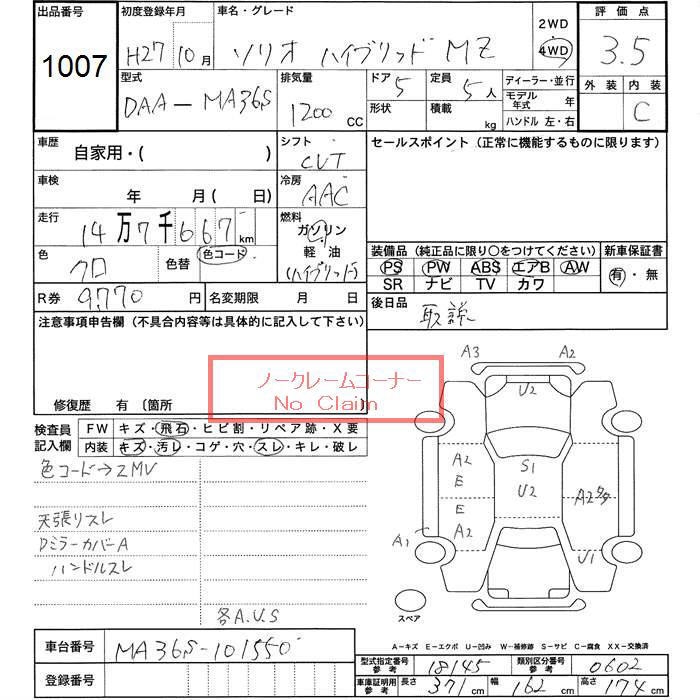 出品番号 初度登録年月 車名・グレード 2WD 評価点
1007 H27 10月 ソリオ ハイブリッド MZ 4WD 3.5
型式 排気量 ドア 定員 ディーラー・並行 外装 内装
DAA-MA36S 1200 CC 5 5人 モデル年式 年 C
形状 積載 kg ハンドル 左・右
車歴 自家用・( ) シフト CVT セールスポイント (正常に機能するものに限ります)
車検 年 月 ( 日) 冷房 AAC
走行 14万7千667km 燃料 ガソリン
軽油
(ハイブリッド)
色 クロ 色替 色コード
装備品 (純正品に限り○をつけてください) 新車保証書
PS PW ABS エアB AW 有・無
SR ナビ TV カワ
R券 9,770 円 名変期限 月 日 後日品 取説
注意事項申告欄 (不具合内容等は具体的に記入して下さい)
ノークレームコーナー
No Claim
修復歴 有 〔箇所 〕
検査員記入欄 FW キズ・飛石・ヒビ割・リペア跡・X要
内装 キズ・汚レ・コゲ・穴・スレ・キレ・破レ
色コード→ZMV
天張リスレ
DミラーカバーA
ハンドルスレ
各A.U.S
A3 A2
U2
A2 S1
E U2 A2タタ
E
A2
A1 U1
スペア
A-キズ E-エクボ U-凹み W-補修跡 S-サビ C-腐食 XX-交換済
車台番号 MA36S-101550
登録番号
型式指定番号 参考 18145 類別区分番号 参考 0602
車庫証明用 参考 長さ 371cm 幅 162cm 高さ 174cm